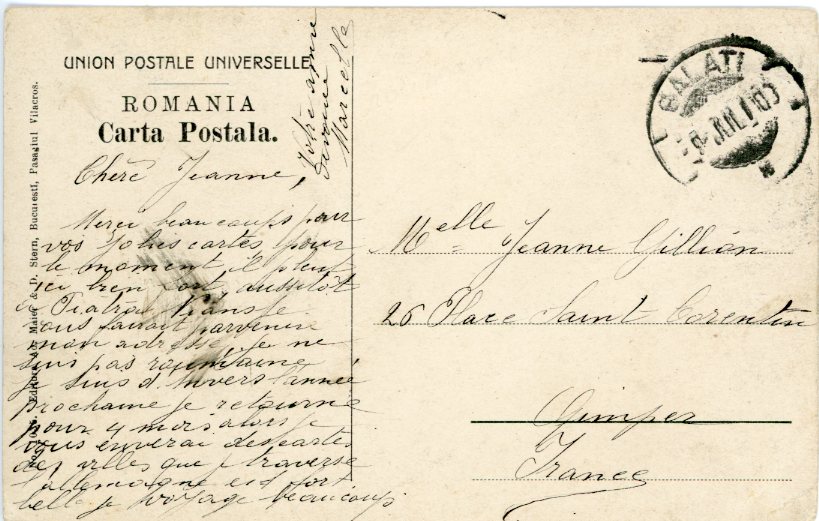 UNION POSTALE UNIVERSELLE
ROMANIA
Carta Postala.
Editura Ad. Maier & D. Stern, Bucuresti, Pasagiul Vilacros.
GALATI
Votre amie
dévouée
Marcelle
Cherè Jeanne,
Merci beaucoups pour
vos jolies cartes pour
le moment il pleut
ici bien fort, aussitôt
a Piatra
vous faurait parvenir
mon adresse, je ne
suis pas roumaine
je suis d'Anvers l'année
prochaine je retourne
pour 4 mois alors je
vous enverai des cartes
des villes que je traverse
l'allemagne est fort
belle je voyage beaucoup
Melle Jeanne Gillion
26 Place Saint Corentin
Qimper
France